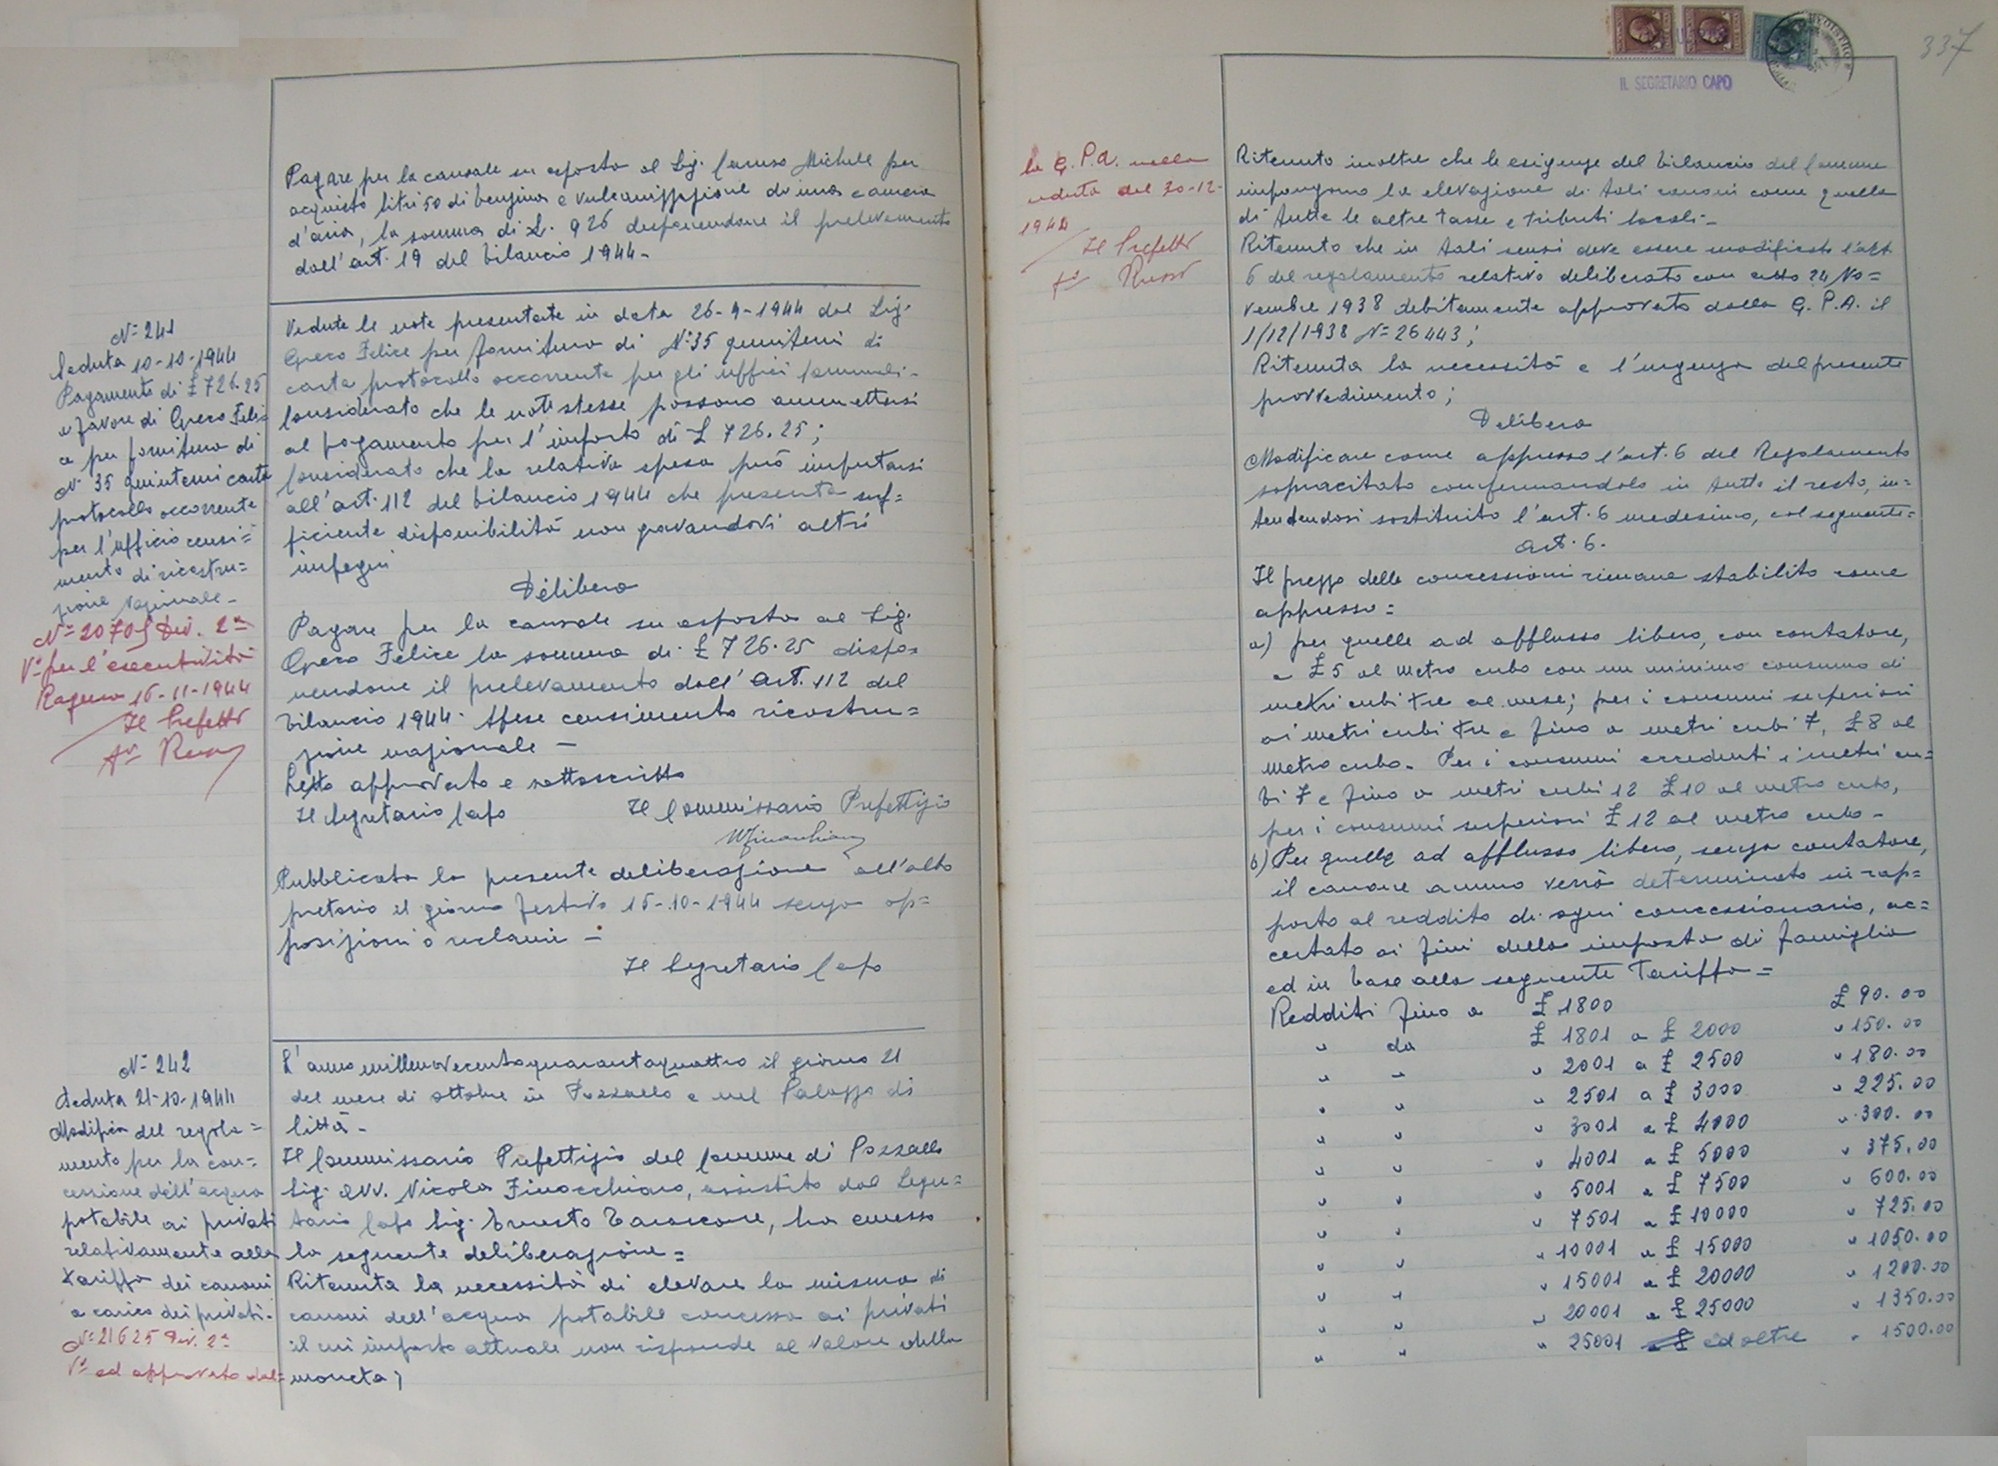 Pagare per la causale su esposta al Sig. Caruso Michele per
acquisto litri 50 di benzina e vulcanizzazione di una camera
d'aria, la somma di £. 926 disponendone il prelevamento
dall'art. 19 del bilancio 1944-
N= 241
Seduta 10-10-1944
Pagamento di £ 726.25
a favore di Greco Feli=
ce per fornitura di
N. 35 quinterni carta
protocollo occorrente
per l'ufficio censi=
mento di ricostru=
zione Nazionale-
N= 20705 Div. 2ª
Vº per l'esecutività
Ragusa 15-11-1944
Il Prefetto
Russo
Vedute le note presentate in data 26-9-1944 dal Sig.
Greco Felice per fornitura di Nº 35 quinterni di
carta protocollo occorrente per gli uffici Comunali-
Considerato che le note stesse possono ammettersi
al pagamento per l'importo di £ 726.25;
Considerato che la relativa spesa può imputarsi
all'art. 112 del bilancio 1944 che presenta suf=
ficiente disponibilità non gravandovi altri
impegni
Delibera
Pagare per la causale su esposta al Sig.
Greco Felice la somma di £ 726.25 dispo=
nendone il prelevamento dall'Art. 112 del
bilancio 1944. Spese censimento ricostru=
zione nazionale-
Letto approvato e sottoscritto
Il Segretario Capo Il Commissario Prefettizio
Pubblicata la presente deliberazione all'albo
pretorio il giorno festivo 15-10-1944 senza op=
posizioni o reclami-
Il Segretario Capo
N= 242
Seduta 21-10-1944
Modifica del regola=
mento per la con=
cessione dell'acqua
potabile ai privati
relativamente alla
tariffa dei canoni
a carico dei privati-
N= 21625 Div. 2ª
Vº ed approvato dal=
L'anno millenovecentoquarantaquattro il giorno 21
del mese di ottobre in Pozzallo e nel Palazzo di
Città-
Il Commissario Prefettizio del Comune di Pozzallo
Sig. Avv. Nicola Finocchiaro, assistito dal Segre=
tario Capo Sig. Ernesto Tarascone, ha emesso
la seguente deliberazione=
Ritenuta la necessità di elevare la misura di
canoni dell'acqua potabile concessa ai privati
il cui importo attuale non risponde al valore della
moneta;
337
IL SEGRETARIO CAPO
la G.P.A. nella
seduta del 30-12-
1944
Il Prefetto
Russo
Ritenuto inoltre che le esigenze del bilancio del Comune
impongono la elevazione di tali canoni come quella
di tutte le altre tasse e tributi locali-
Ritenuto che in tali sensi deve essere modificato l'art
6 del regolamento relativo deliberato con atto 24 No=
vembre 1938 debitamente approvato dalla G.P.A. il
1/12/1938 N= 26443;
Ritenuta la necessità e l'urgenza del presente
provvedimento;
Delibera
Modificare come appresso l'art. 6 del Regolamento
sopracitato confermandolo in tutto il resto, in=
tendendosi sostituito l'art. 6 medesimo, col seguente=
Art. 6.
Il prezzo delle concessioni rimane stabilito come
appresso=
a) per quelle ad afflusso libero, con contatore,
a £ 5 al metro cubo con un minimo consumo di
metri cubi tre al mese; per i consumi superiori
ai metri cubi tre e fino a metri cubi 7, £ 8 al
metro cubo- Per i consumi eccedenti i metri cu=
bi 7 e fino a metri cubi 12 £ 10 al metro cubo,
per i consumi superiori £ 12 al metro cubo-
b) Per quelle ad afflusso libero, senza contatore,
il canone annuo verrà determinato in rap=
porto al reddito di ogni concessionario, ac=
certato ai fini della imposta di famiglia
ed in base alla seguente Tariffa=
Redditi fino a £ 1800 £ 90.00
" da £ 1801 a £ 2000 " 150.00
" " " 2001 a £ 2500 " 180.00
" " " 2501 a £ 3000 " 225.00
" " " 3001 a £ 4000 " 300.00
" " " 4001 a £ 5000 " 375.00
" " " 5001 a £ 7500 " 600.00
" " " 7501 a £ 10000 " 725.00
" " " 10001 a £ 15000 " 1050.00
" " " 15001 a £ 20000 " 1200.00
" " " 20001 a £ 25000 " 1350.00
" " " 25001 ed oltre " 1500.00